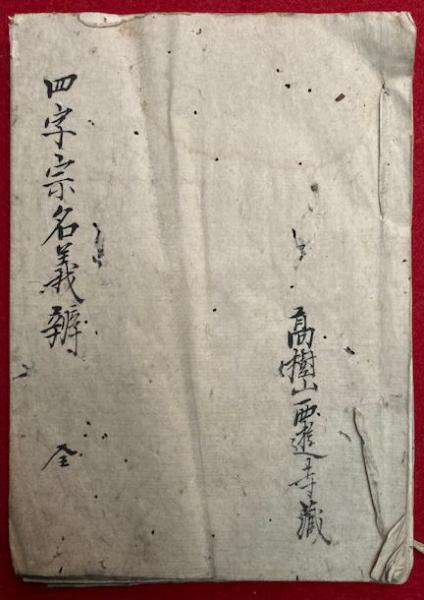 高樹山西遊寺藏
四字宗名義辨
全